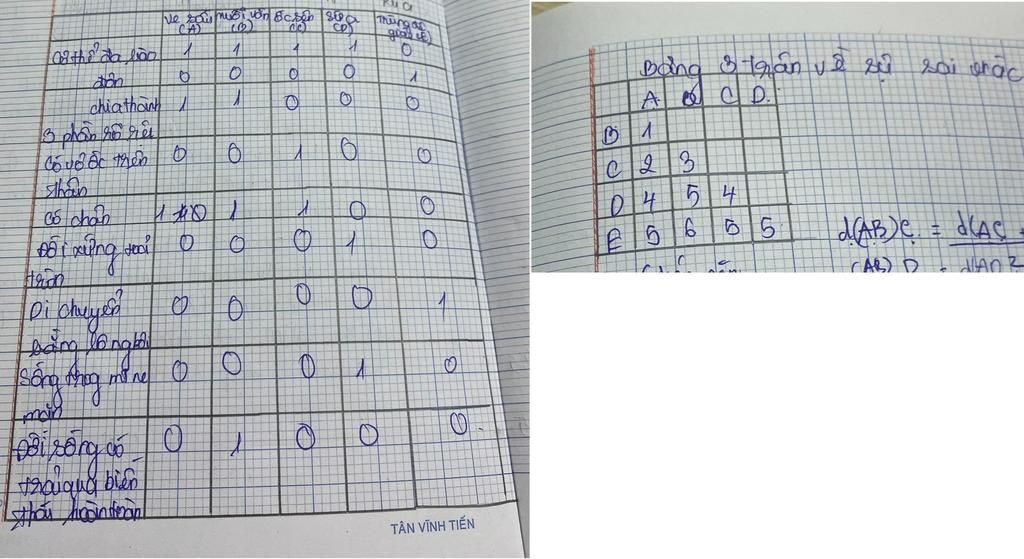 Ve sầu muỗi vằn ốc sên sứa
(A) (B) (C) (D)
Cơ thể đa bào 1 1 1 1 0
đơn 0 0 0 0 1
chia thành 1 1 0 0 0
3 phần rõ rệt
Có vỏ ốc trên 0 0 1 0 0
thân
Có chân 1 1 0 0
Đối xứng toả 0 0 0 1 0
tròn
Di chuyển 0 0 0 0 1
bằng lông bơi
Sống trong 0 0 0 1 0
Đời sống có 0 1 0 0 0.
trải qua biến
thái hoàn toàn
TÂN VĨNH TIẾN
Bảng 3 trận về sự sai khác
A C D.
B 1
C 2 3
D 4 5 4
E 5 6 5 5
d(AB)C. = d(AC +
(AB) D =